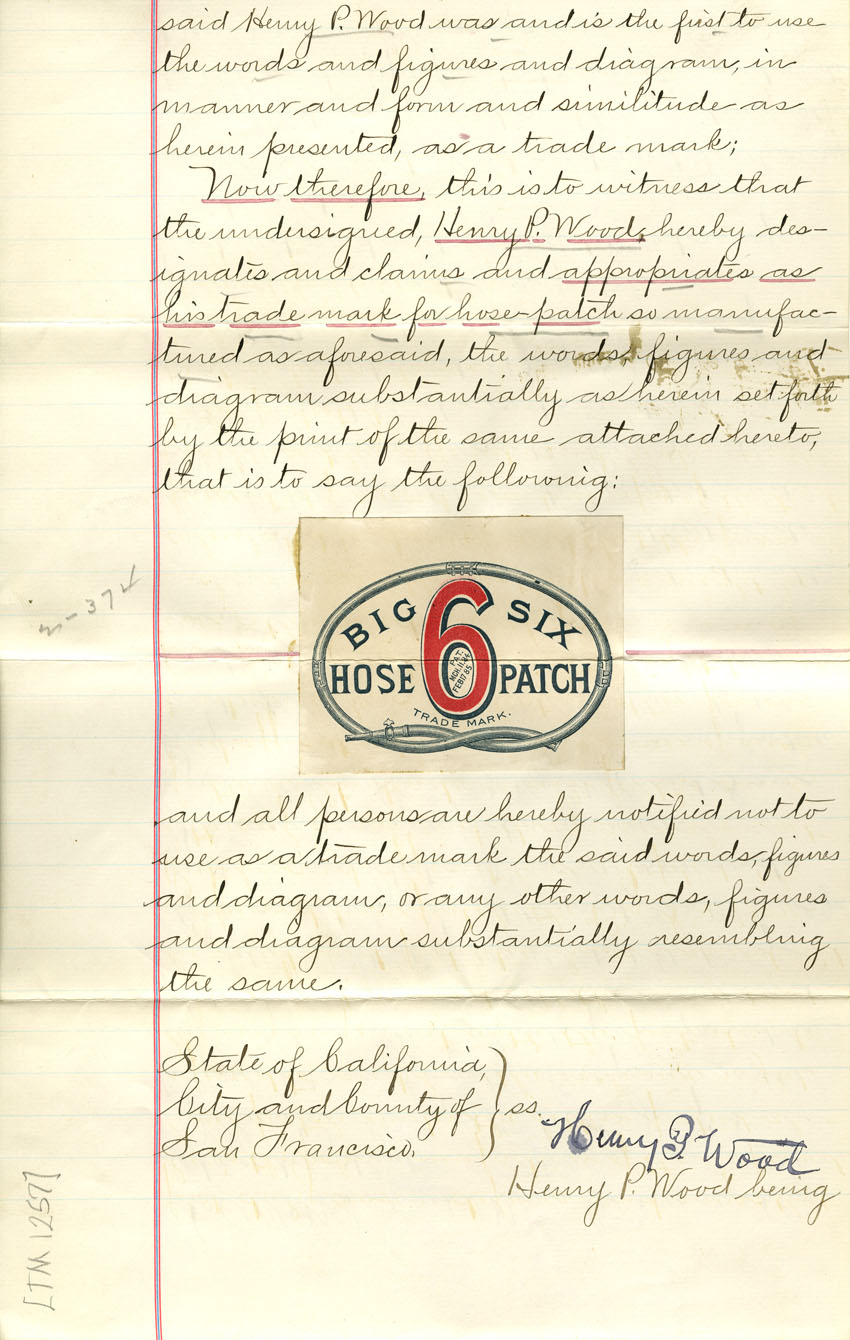 said Henry P. Wood was and is the first to use
the words and figures and diagram, in
manner and form and similitude as
herein presented, as a trade mark;
Now therefore, this is to witness that
the undersigned, Henry P. Wood, hereby des-
ignates and claims and appropriates as
his trade mark for hose-patch so manufac-
tured as aforesaid, the words, figures and
diagram substantially as herein set forth
by the print of the same attached hereto,
that is to say the following:
BIG 6 SIX
HOSE PATCH
PAT.
MCH. 11. 84
FEB 17 85
TRADE MARK.
and all persons are hereby notified not to
use as a trade mark the said words, figures
and diagram, or any other words, figures
and diagram substantially resembling
the same.
State of California,
City and County of } ss.
San Francisco.
Henry P. Wood
Henry P. Wood being
[TM 1257]